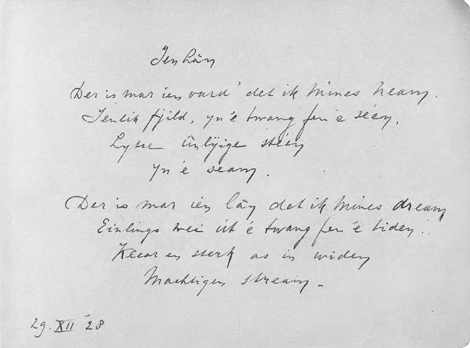 Ien lân
Der is mar ien oard' det ik mines neam.
Ienlik fjild, yn'e twang fen'e séen,
Lytse ûnlijige stéen
yn'e seam.
Der is mar ien lân det ik mines dream
Einlings wei út'e twang fen'e tiden..
Klear en sterk as in widen
Machtigen stream.
29. XII '28